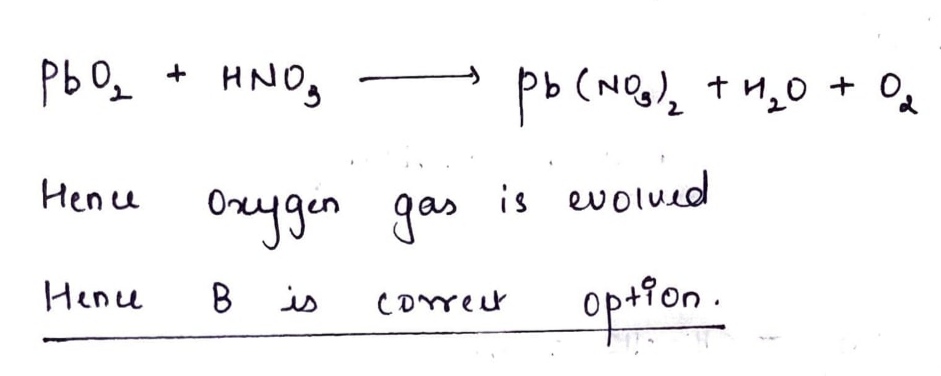 PbO₂ + HNO₃ ⟶ Pb(NO₃)₂ + H₂O + O₂
Hence Oxygen gas is evolved
Hence B is correct option.